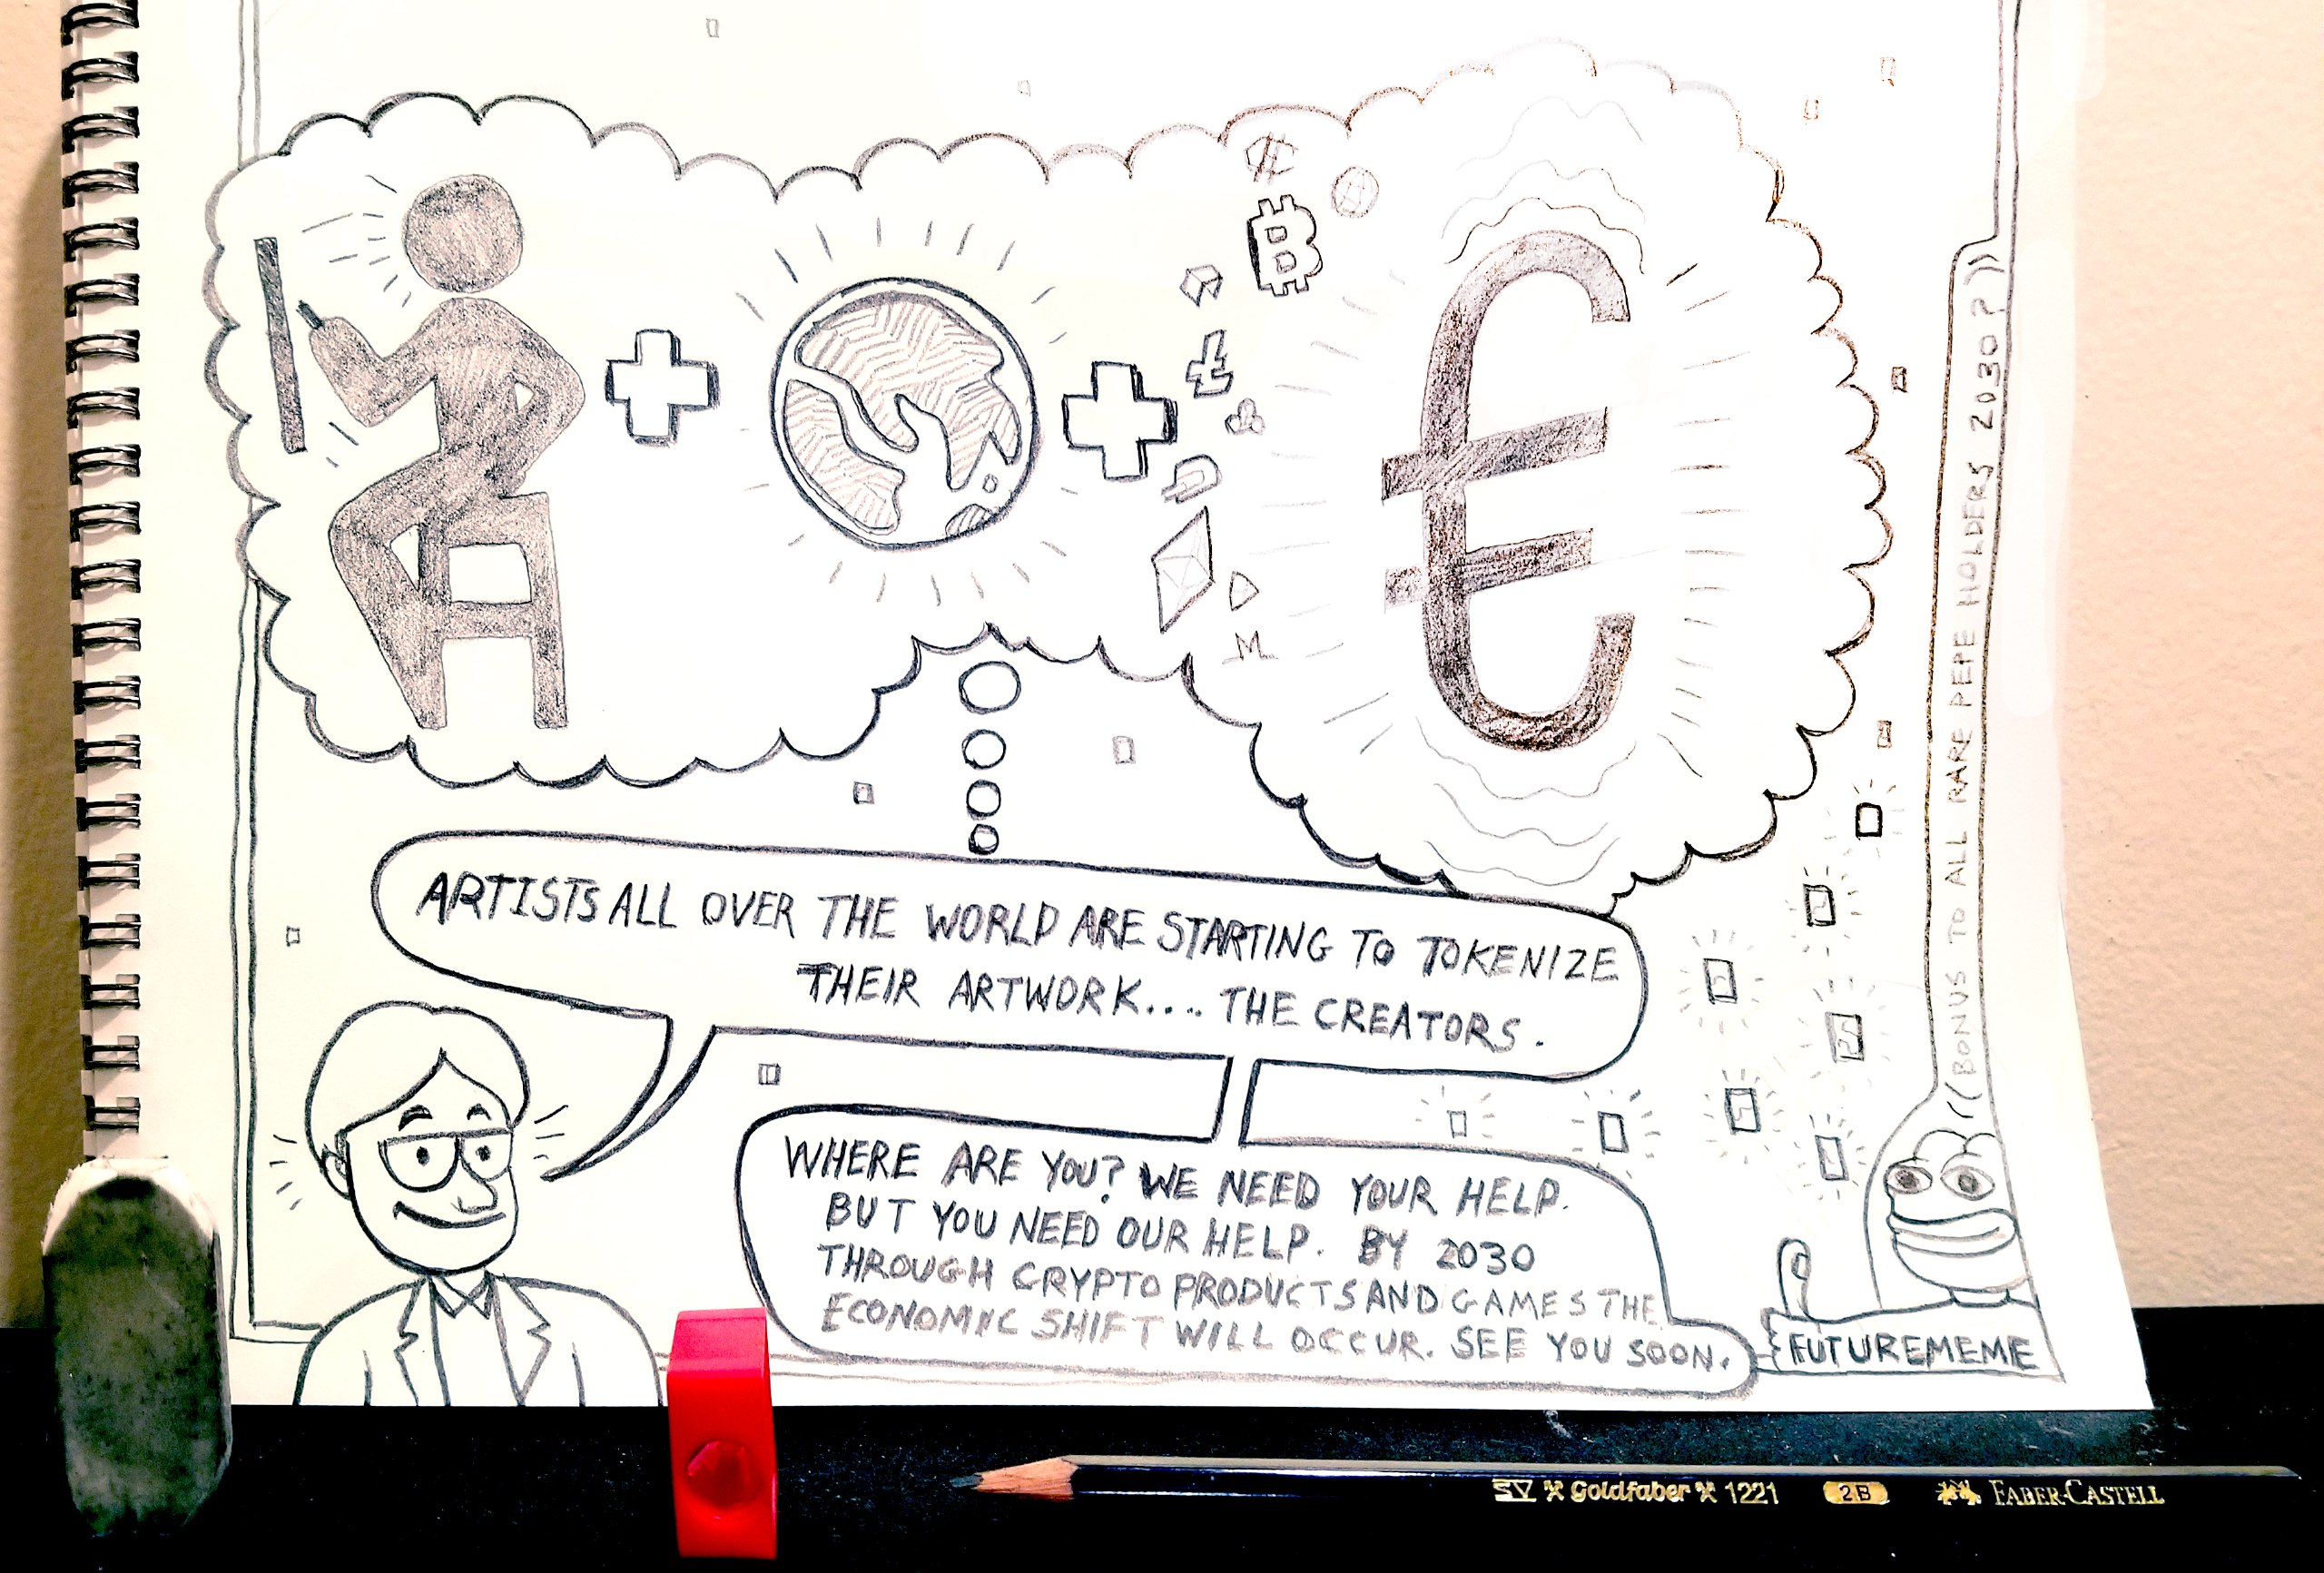 ARTISTS ALL OVER THE WORLD ARE STARTING TO TOKENIZE
THEIR ARTWORK.... THE CREATORS.
WHERE ARE YOU? WE NEED YOUR HELP.
BUT YOU NEED OUR HELP. BY 2030
THROUGH CRYPTO PRODUCTS AND GAMES THE
ECONOMIC SHIFT WILL OCCUR. SEE YOU SOON.
((BONUS TO ALL RARE PEPE HOLDERS 2030?))
FUTUREMEME
Goldfaber 1221 2B FABER-CASTELL